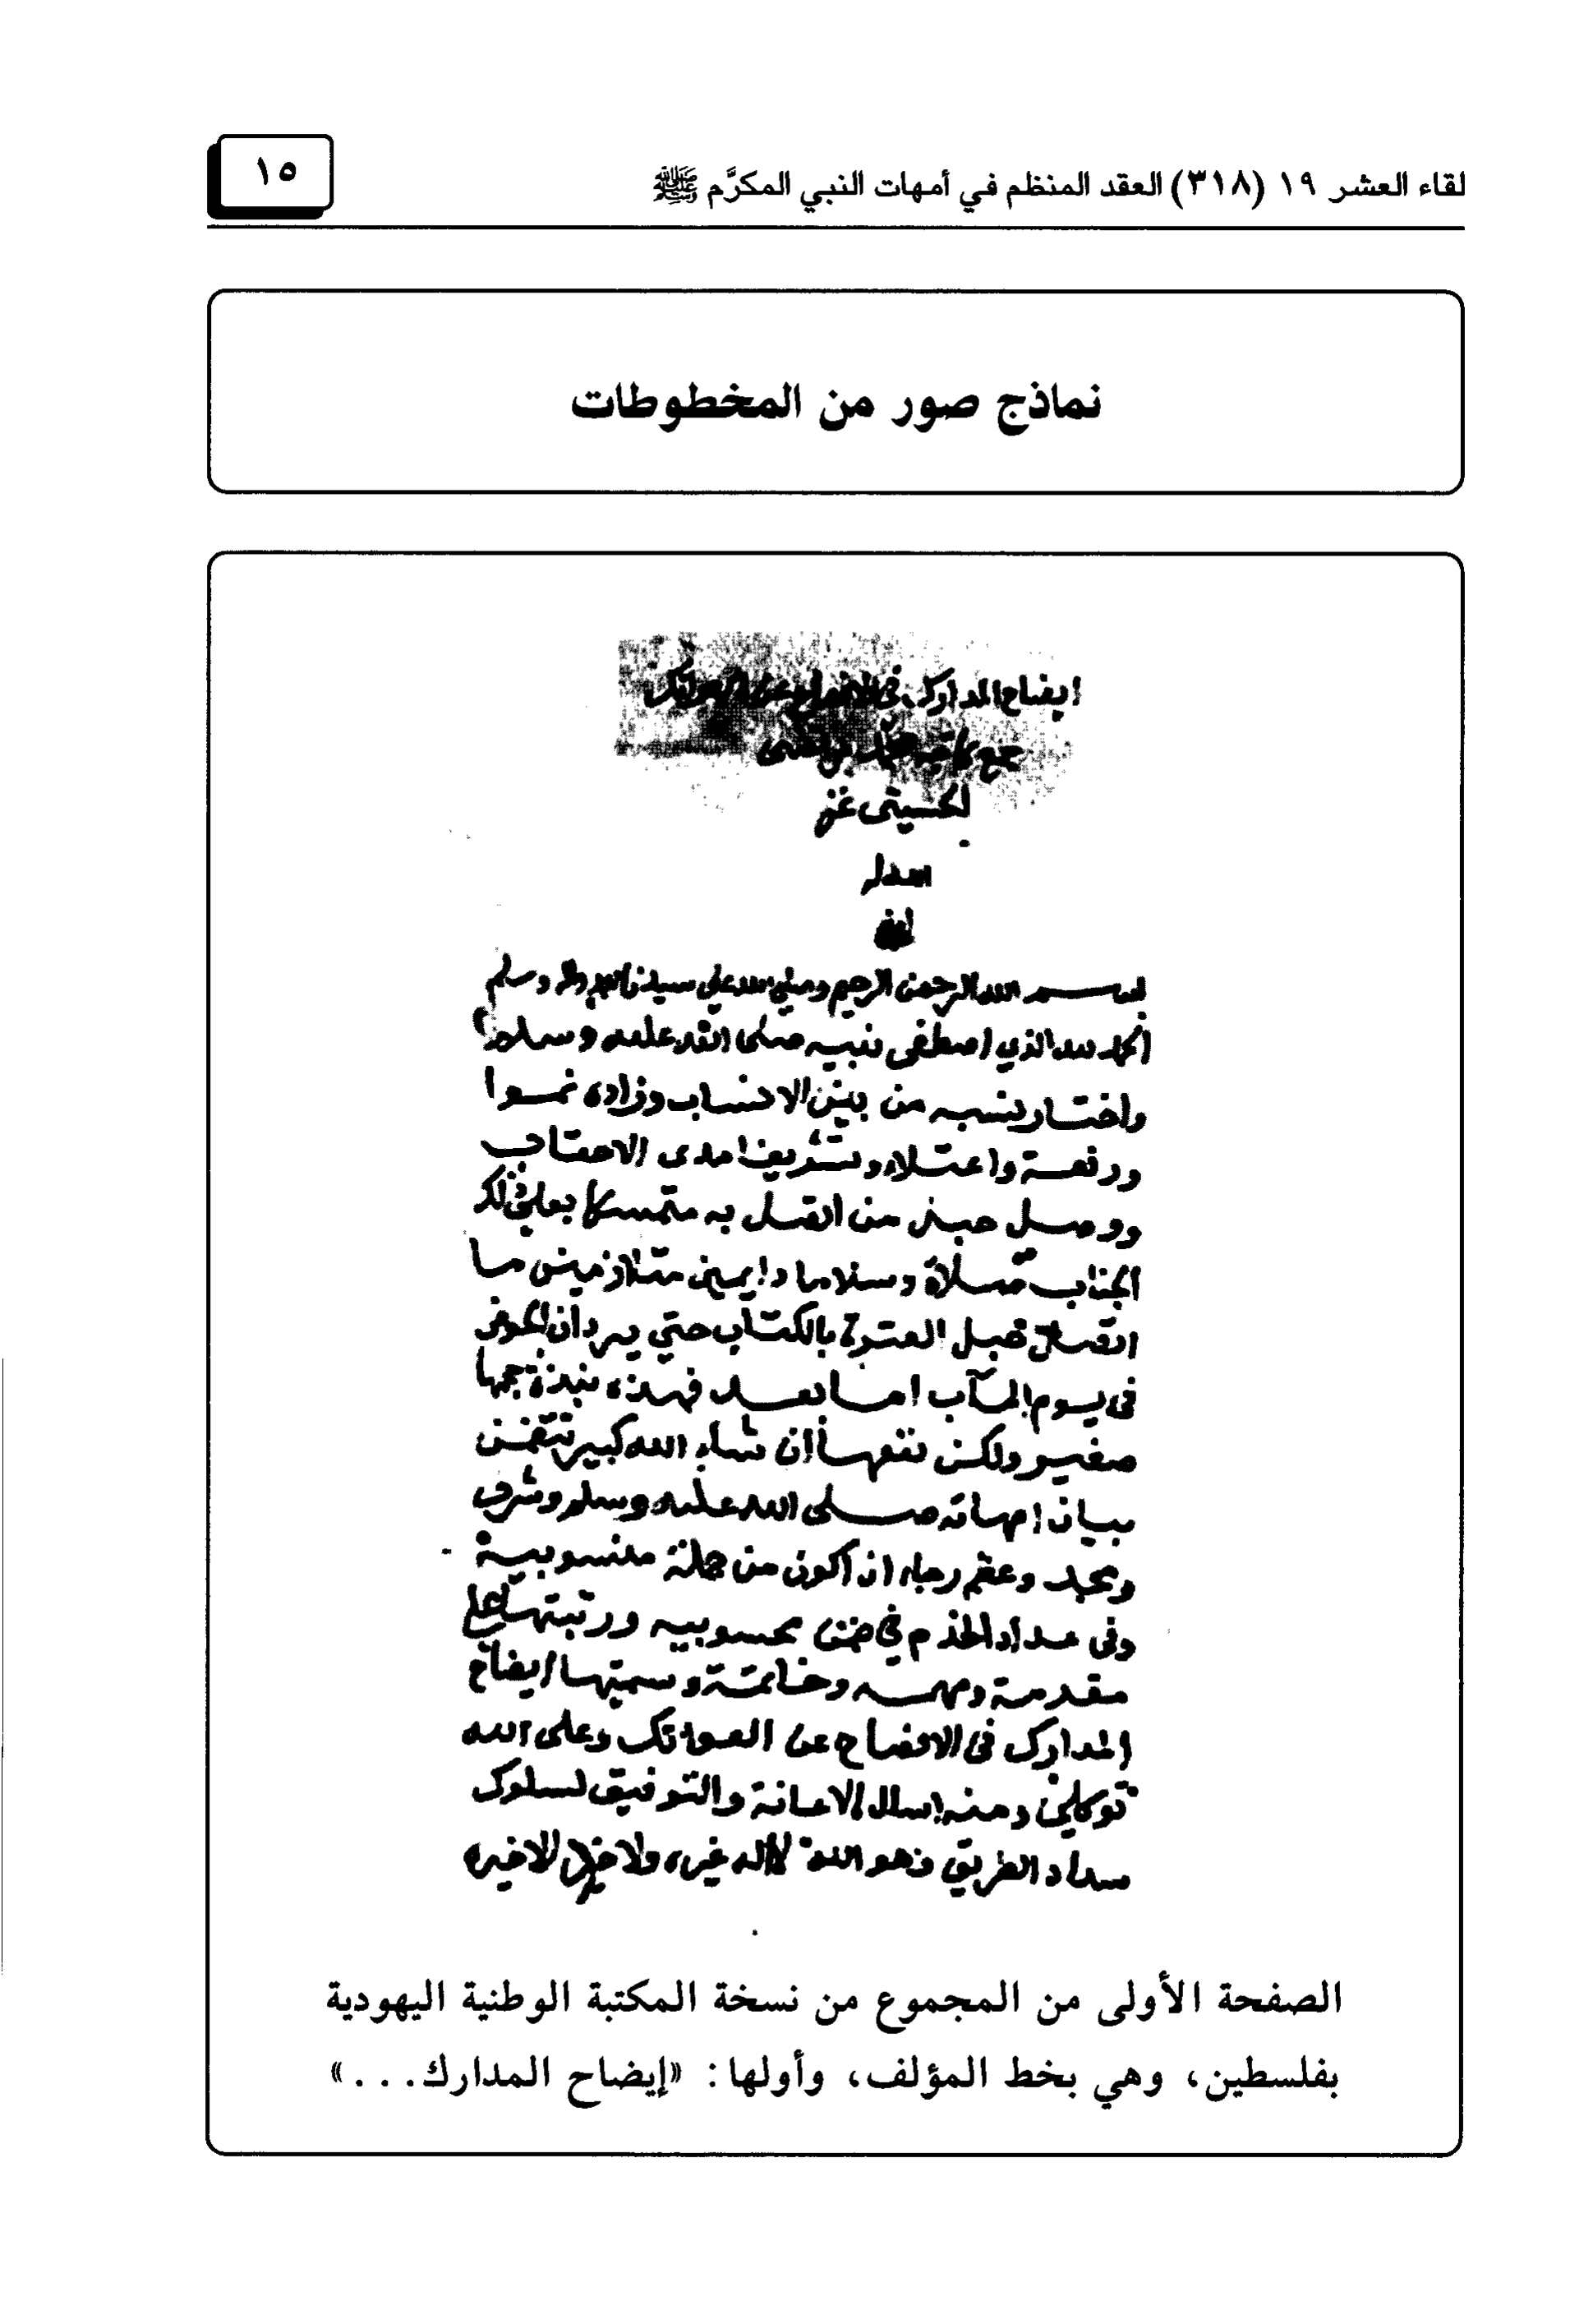 لقاء العشر ١٩ (٣١٨) العقد المنظم في أمهات النبي المكرَّم ﷺ
١٥
نماذج صور من المخطوطات
ايضاح المدارك في الافصاح عن العواتك
جمع كاتبه محمد مرتضى
الحسيني غفر
الله له
بسم الله الرحمن الرحيم وصلى الله على سيدنا محمد واله وسلم
الحمد لله الذي اصطفى نبيه صلى الله عليه وسلم
واختار نسبه من بين الانساب وزاده نموا
ورفعة واعتلاء وتشريفا مدى الاحقاب
ووصل حبل من اتصل به متمسكا بعلي ذلك
الجناب صلاة وسلاما دايمين متلازمين ما
اتصل حبل العترة بالكتاب حتى يردان الحوض
في يوم المآب اما بعد فهذه نبذة حجمها
صغير ولكن نفعها ان شاء الله كبير تتضمن
بيان امهاته صلى الله عليه وسلم وشرف
ومجد وعظم رجاء ان اكون من جملة منسوبيه
وفي عداد الخدم في ضمن محسوبيه ورتبتها على
مقدمة ومهمه وخاتمة وسميتها ايضاح
المدارك في الافصاح عن العواتك وعلى الله
توكلي ومنه اسال الاعانة والتوفيق لسلوك
سداد الطريق فهو الله لا اله غيره ولا خير الا خيره
الصفحة الأولى من المجموع من نسخة المكتبة الوطنية اليهودية
بفلسطين، وهي بخط المؤلف، وأولها: «إيضاح المدارك...»